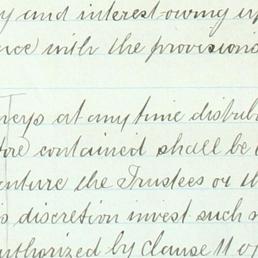 y and interest owing up
nce with the provisions
neys at any time distrib
fore contained shall be
enture the Trustees or th
s discretion invest such
uthorized by Clause 11 of